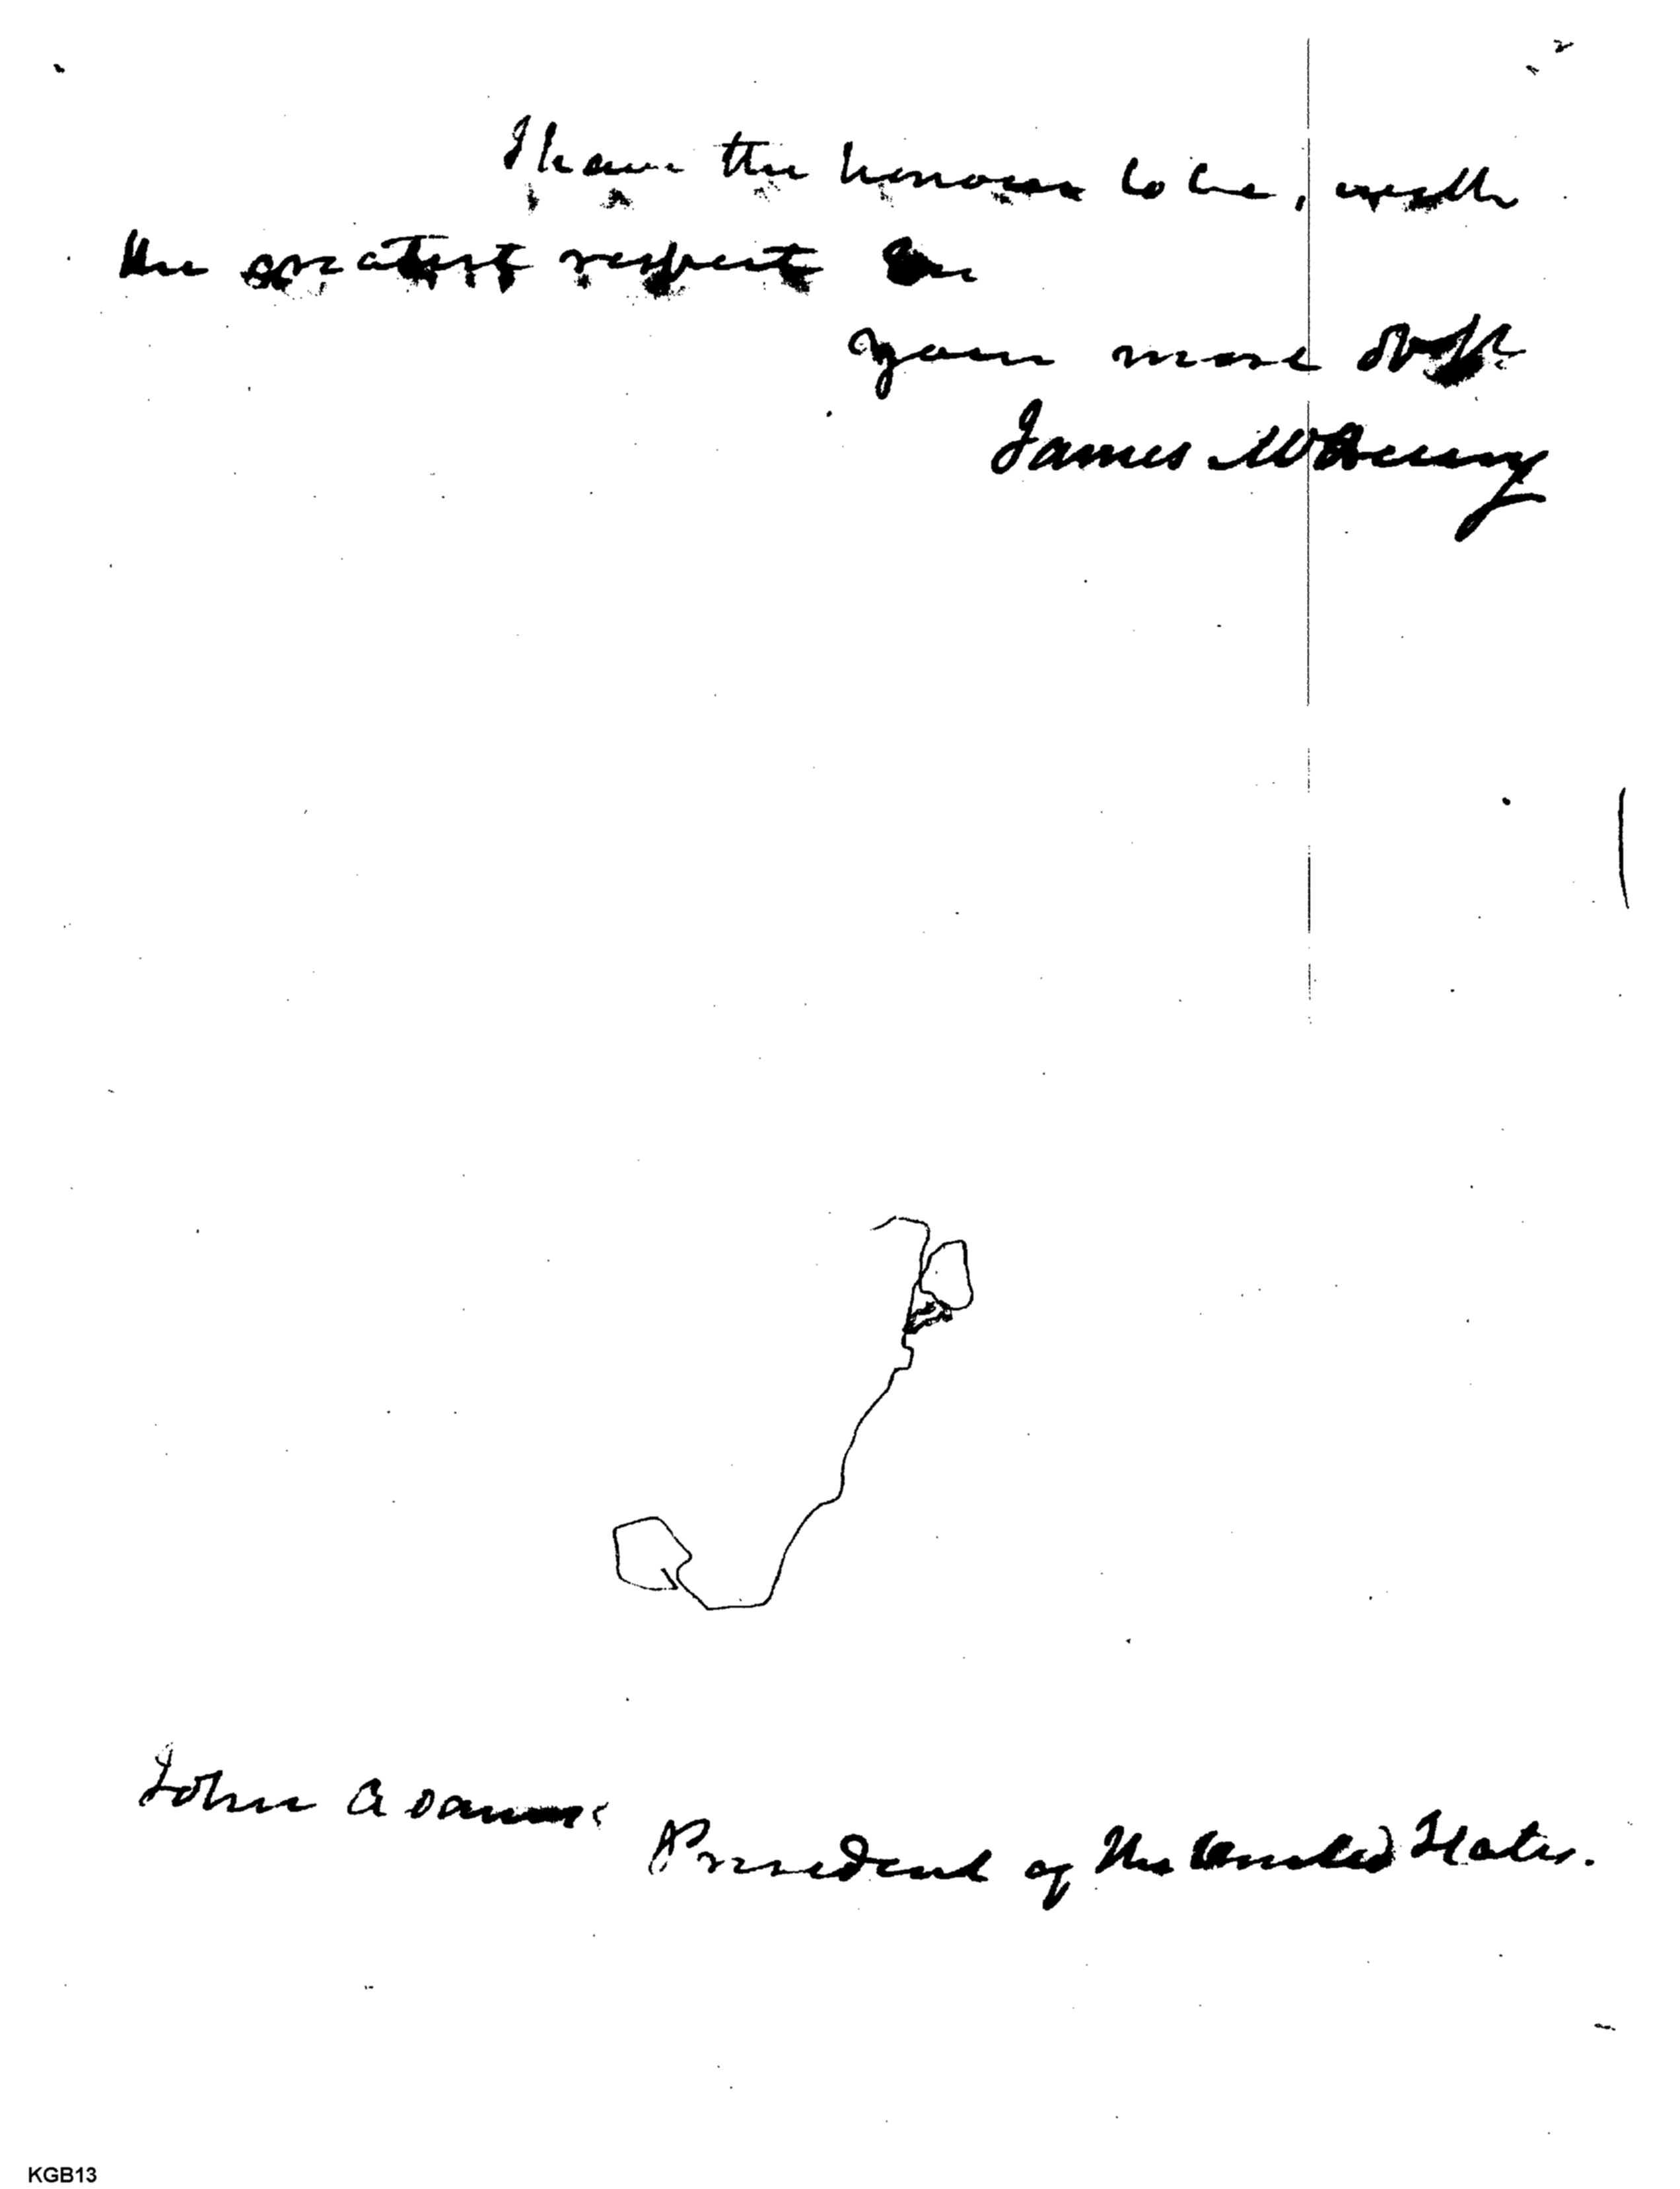 I have the honour to be, with
the greatest respect Sir
your most Obt
James McHenry
John Adams
President of the United States.
KGB13